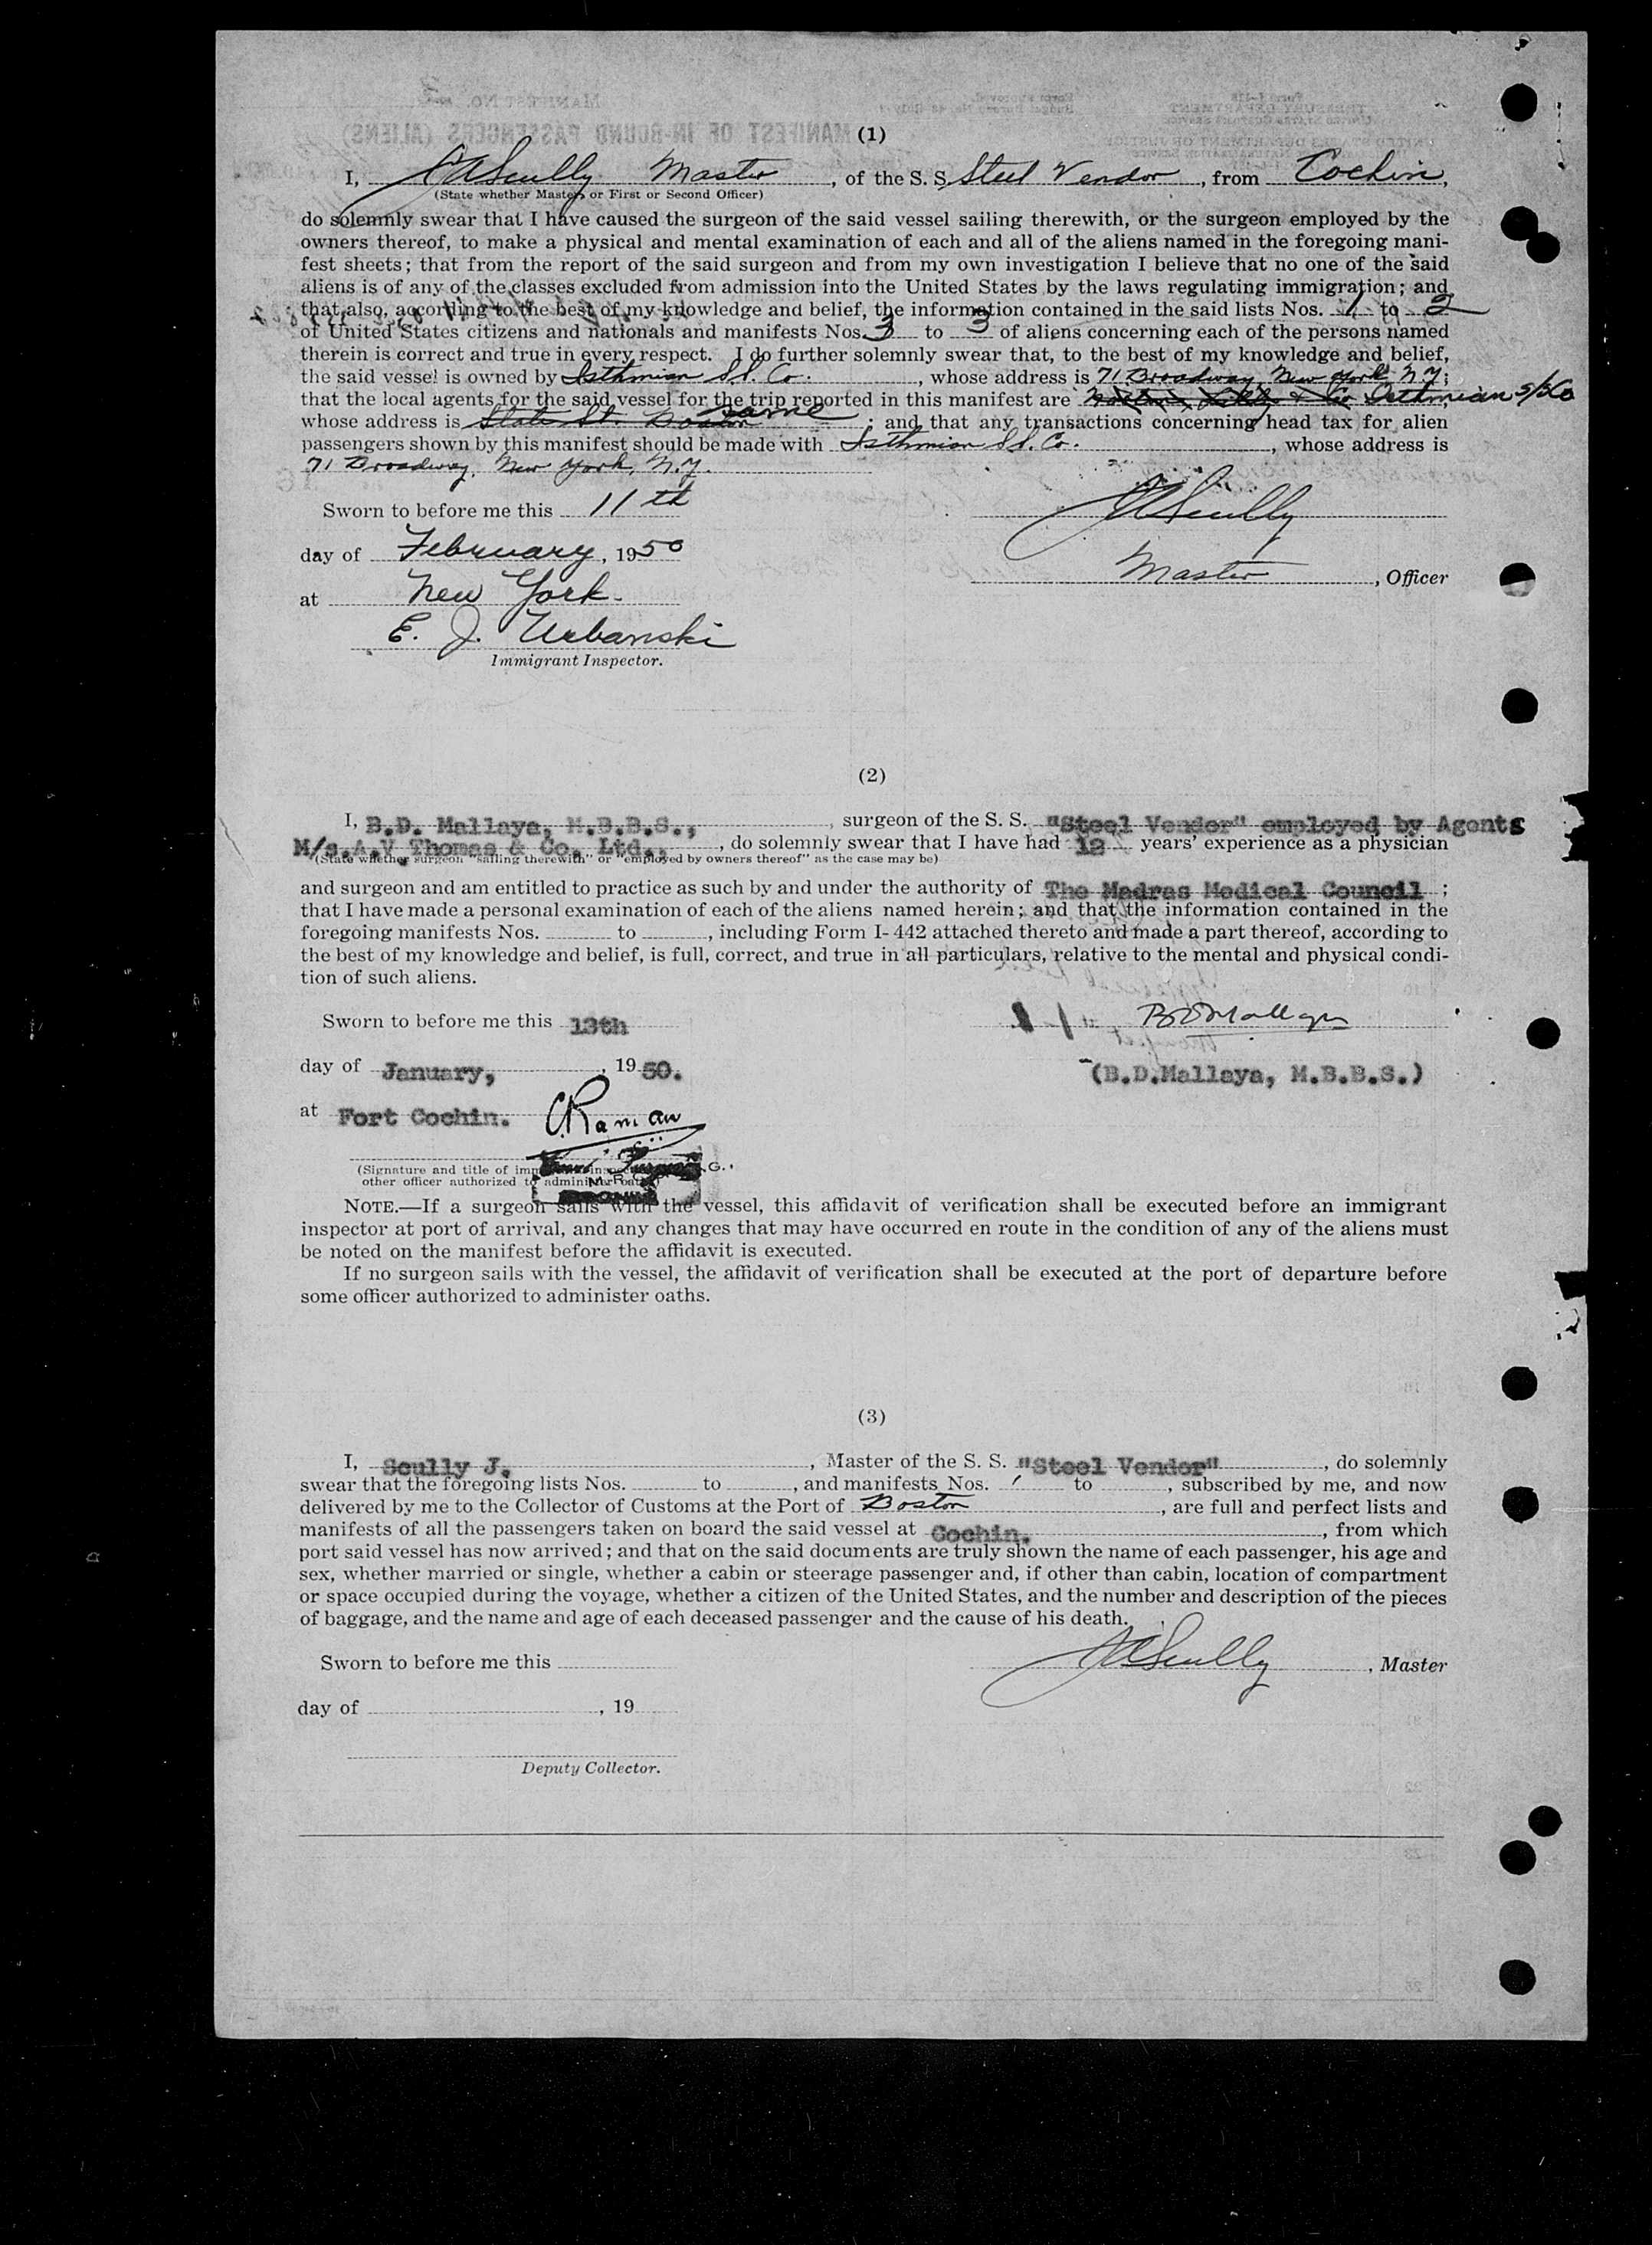 (1)
I, J A Scully Master, of the S. S. Steel Vendor, from Cochin,
(State whether Master, or First or Second Officer)
do solemnly swear that I have caused the surgeon of the said vessel sailing therewith, or the surgeon employed by the
owners thereof, to make a physical and mental examination of each and all of the aliens named in the foregoing mani-
fest sheets; that from the report of the said surgeon and from my own investigation I believe that no one of the said
aliens is of any of the classes excluded from admission into the United States by the laws regulating immigration; and
that also, according to the best of my knowledge and belief, the information contained in the said lists Nos. 1 to 2
of United States citizens and nationals and manifests Nos. 3 to 3 of aliens concerning each of the persons named
therein is correct and true in every respect. I do further solemnly swear that, to the best of my knowledge and belief,
the said vessel is owned by Isthmian S.S. Co., whose address is 71 Broadway, New York N.Y;
that the local agents for the said vessel for the trip reported in this manifest are Isthmian S/S Co
whose address is State St. Boston same; and that any transactions concerning head tax for alien
passengers shown by this manifest should be made with Isthmian S.S. Co., whose address is
71 Broadway, New York, N.Y.
Sworn to before me this 11th
J A Scully
day of February, 1950
Master, Officer
at New York
E. J. Urbanski
Immigrant Inspector.
(2)
I, B.D. Mallaya, M.B.B.S., surgeon of the S. S. "Steel Vendor" employed by Agents
M/s.A.V Thomas & Co. Ltd., do solemnly swear that I have had 12 years' experience as a physician
(State whether surgeon "sailing therewith" or "employed by owners thereof" as the case may be)
and surgeon and am entitled to practice as such by and under the authority of The Madras Medical Council;
that I have made a personal examination of each of the aliens named herein; and that the information contained in the
foregoing manifests Nos. to , including Form I-442 attached thereto and made a part thereof, according to
the best of my knowledge and belief, is full, correct, and true in all particulars, relative to the mental and physical condi-
tion of such aliens.
Sworn to before me this 13th
B D Mallaya
day of January, 1950.
(B.D.Mallaya, M.B.B.S.)
at Fort Cochin.
C. Raman
(Signature and title of
other officer authorized to administer oaths)
NOTE.—If a surgeon sails with the vessel, this affidavit of verification shall be executed before an immigrant
inspector at port of arrival, and any changes that may have occurred en route in the condition of any of the aliens must
be noted on the manifest before the affidavit is executed.
If no surgeon sails with the vessel, the affidavit of verification shall be executed at the port of departure before
some officer authorized to administer oaths.
(3)
I, Scully J., Master of the S. S. "Steel Vendor", do solemnly
swear that the foregoing lists Nos. to , and manifests Nos. to , subscribed by me, and now
delivered by me to the Collector of Customs at the Port of Boston, are full and perfect lists and
manifests of all the passengers taken on board the said vessel at Cochin., from which
port said vessel has now arrived; and that on the said documents are truly shown the name of each passenger, his age and
sex, whether married or single, whether a cabin or steerage passenger and, if other than cabin, location of compartment
or space occupied during the voyage, whether a citizen of the United States, and the number and description of the pieces
of baggage, and the name and age of each deceased passenger and the cause of his death.
Sworn to before me this
J A Scully, Master
day of , 19
Deputy Collector.